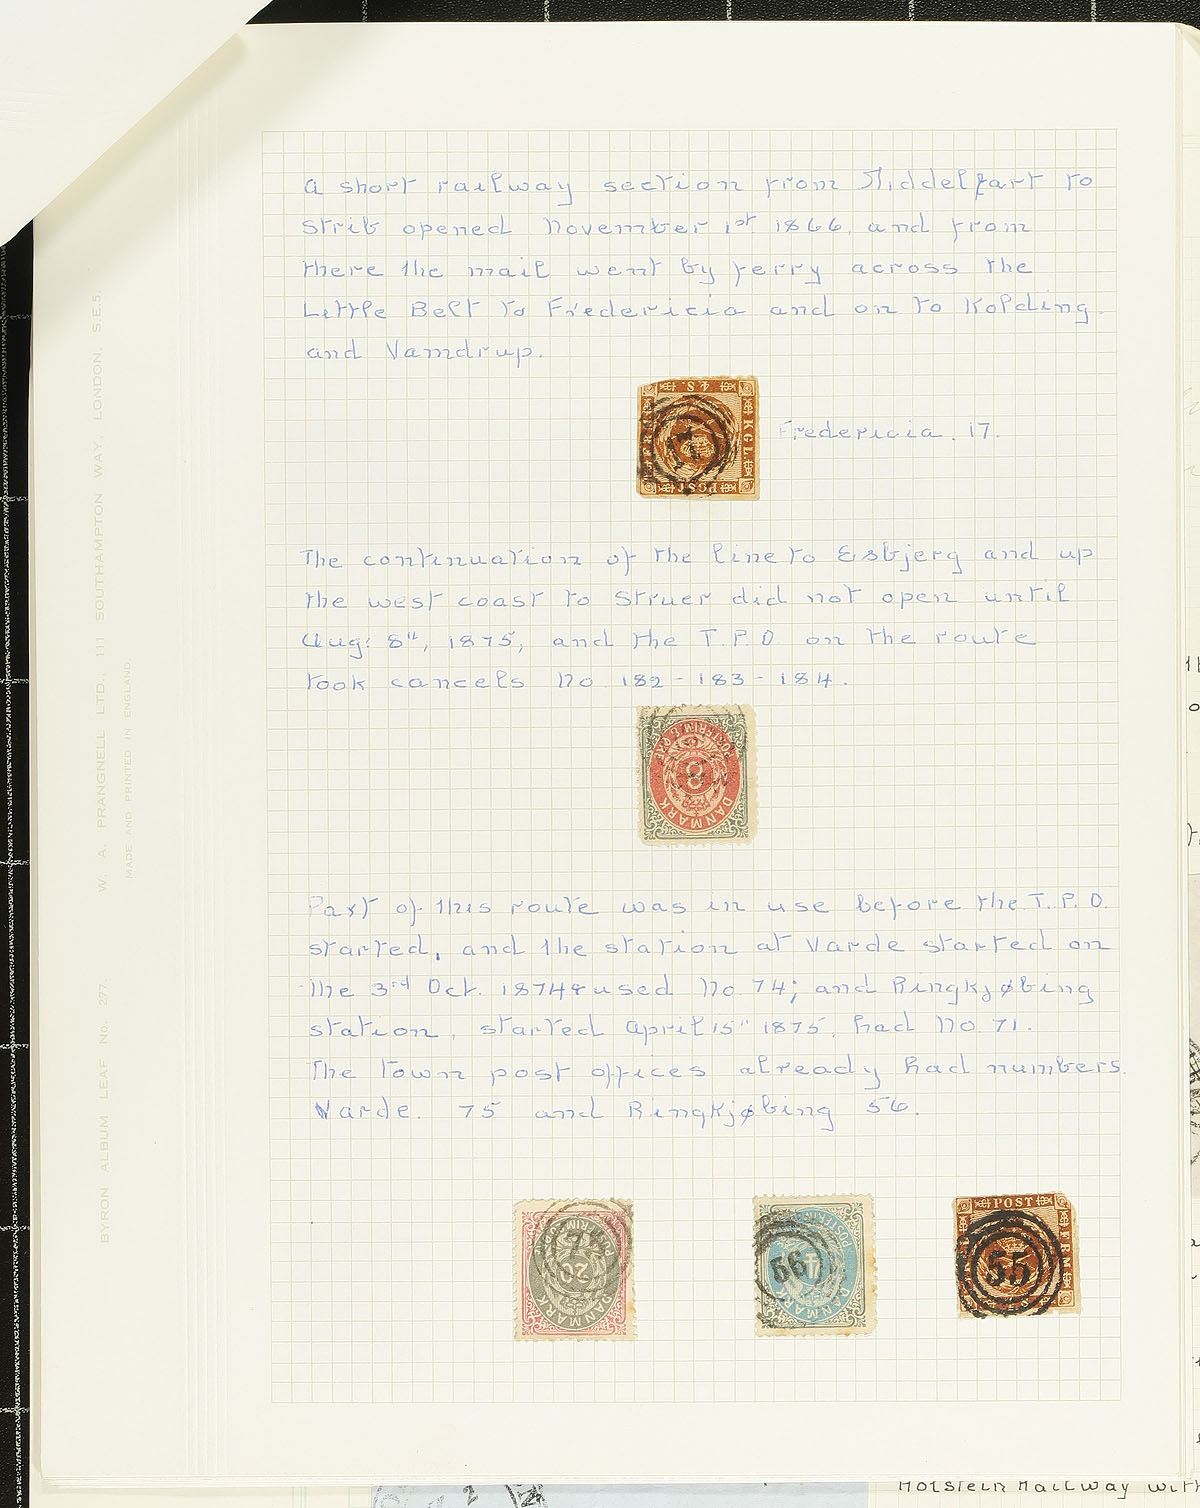 A short railway section from Middelfart to
Strib opened November 1st 1866, and from
there the mail went by ferry across the
Little Belt to Fredericia and on to Kolding
and Vamdrup.
4 S.
KGL
POST
FRM
17
Fredericia. 17.
The continuation of the line to Esbjerg and up
the west coast to Struer did not open until
Aug: 8th, 1875, and the T.P.O on the route
took cancels No 182 - 183 - 184.
8
DANMARK
Part of this route was in use before the T.P.O.
started, and the station at Varde started on
the 3rd Oct. 1874 & used No 74; and Ringkjøbing
station, started April 15" 1875, had No 71.
The Town post offices already had numbers.
Varde. 75 and Ringkjøbing 56.
20
DANMARK
56
4
DANMARK
POST
FRM
55
BYRON ALBUM LEAF No. 277. W. A. PRANGNELL LTD., 111 SOUTHAMPTON WAY, LONDON, S.E.5.
MADE AND PRINTED IN ENGLAND.
Holstein Railway with